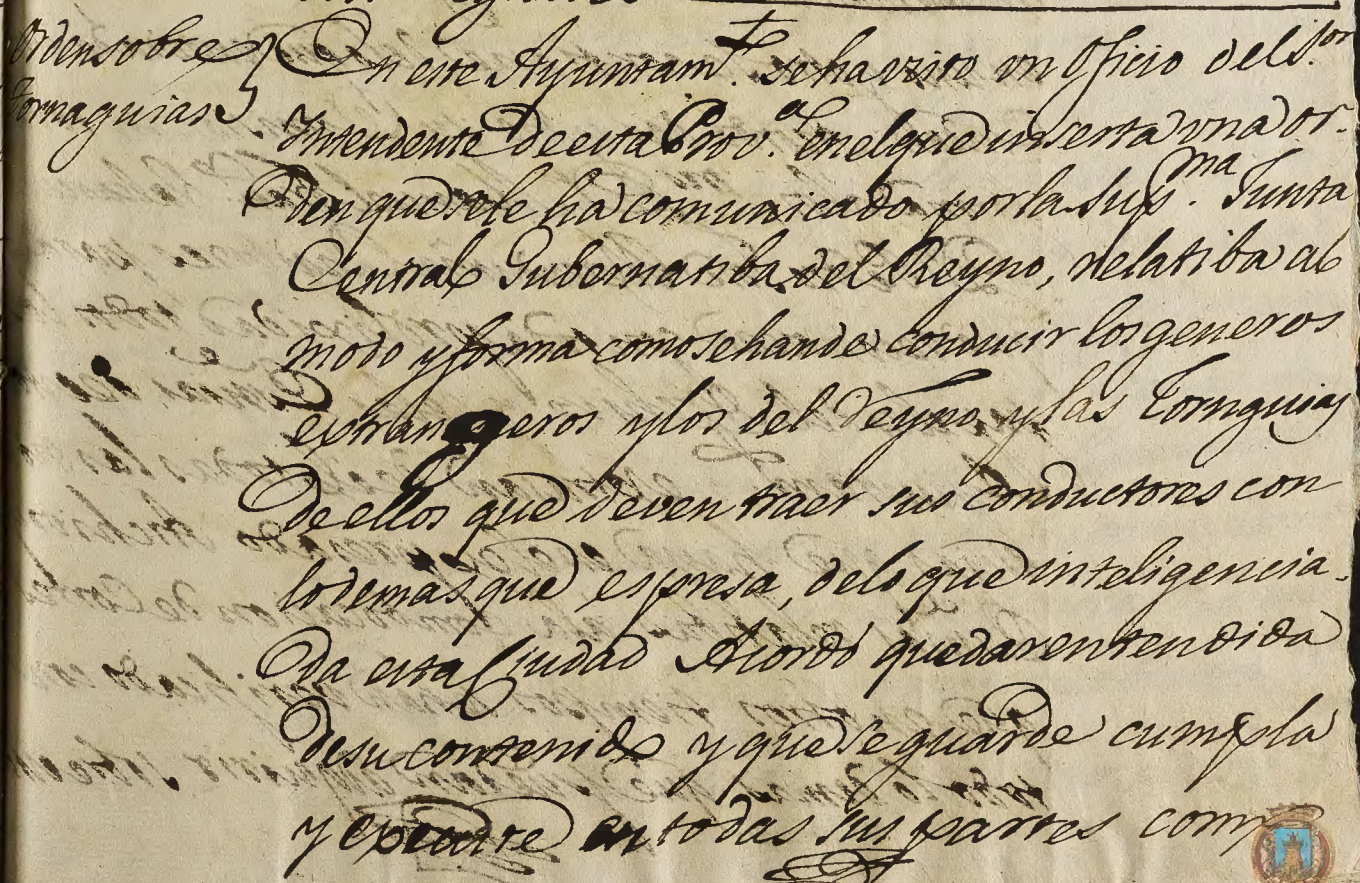 Orden sobre
tornaguias
En este Ayuntamto. se ha visto un Oficio del Sor.
Intendente de esta Prova. en el que inserta una or-
den que se le ha comunicado por la Supma. Junta
Central Gubernatiba del Reyno, relatiba al
modo y forma como se han de conducir los generos
extrangeros y los del Reyno, y las Tornguias
de ellos que deven traer sus conductores con
lo demas que espresa, de lo que inteligencia-
da esta Ciudad Acordó quedar entendida
de su contenido y que se guarde cumpla
y execute en todas sus partes como